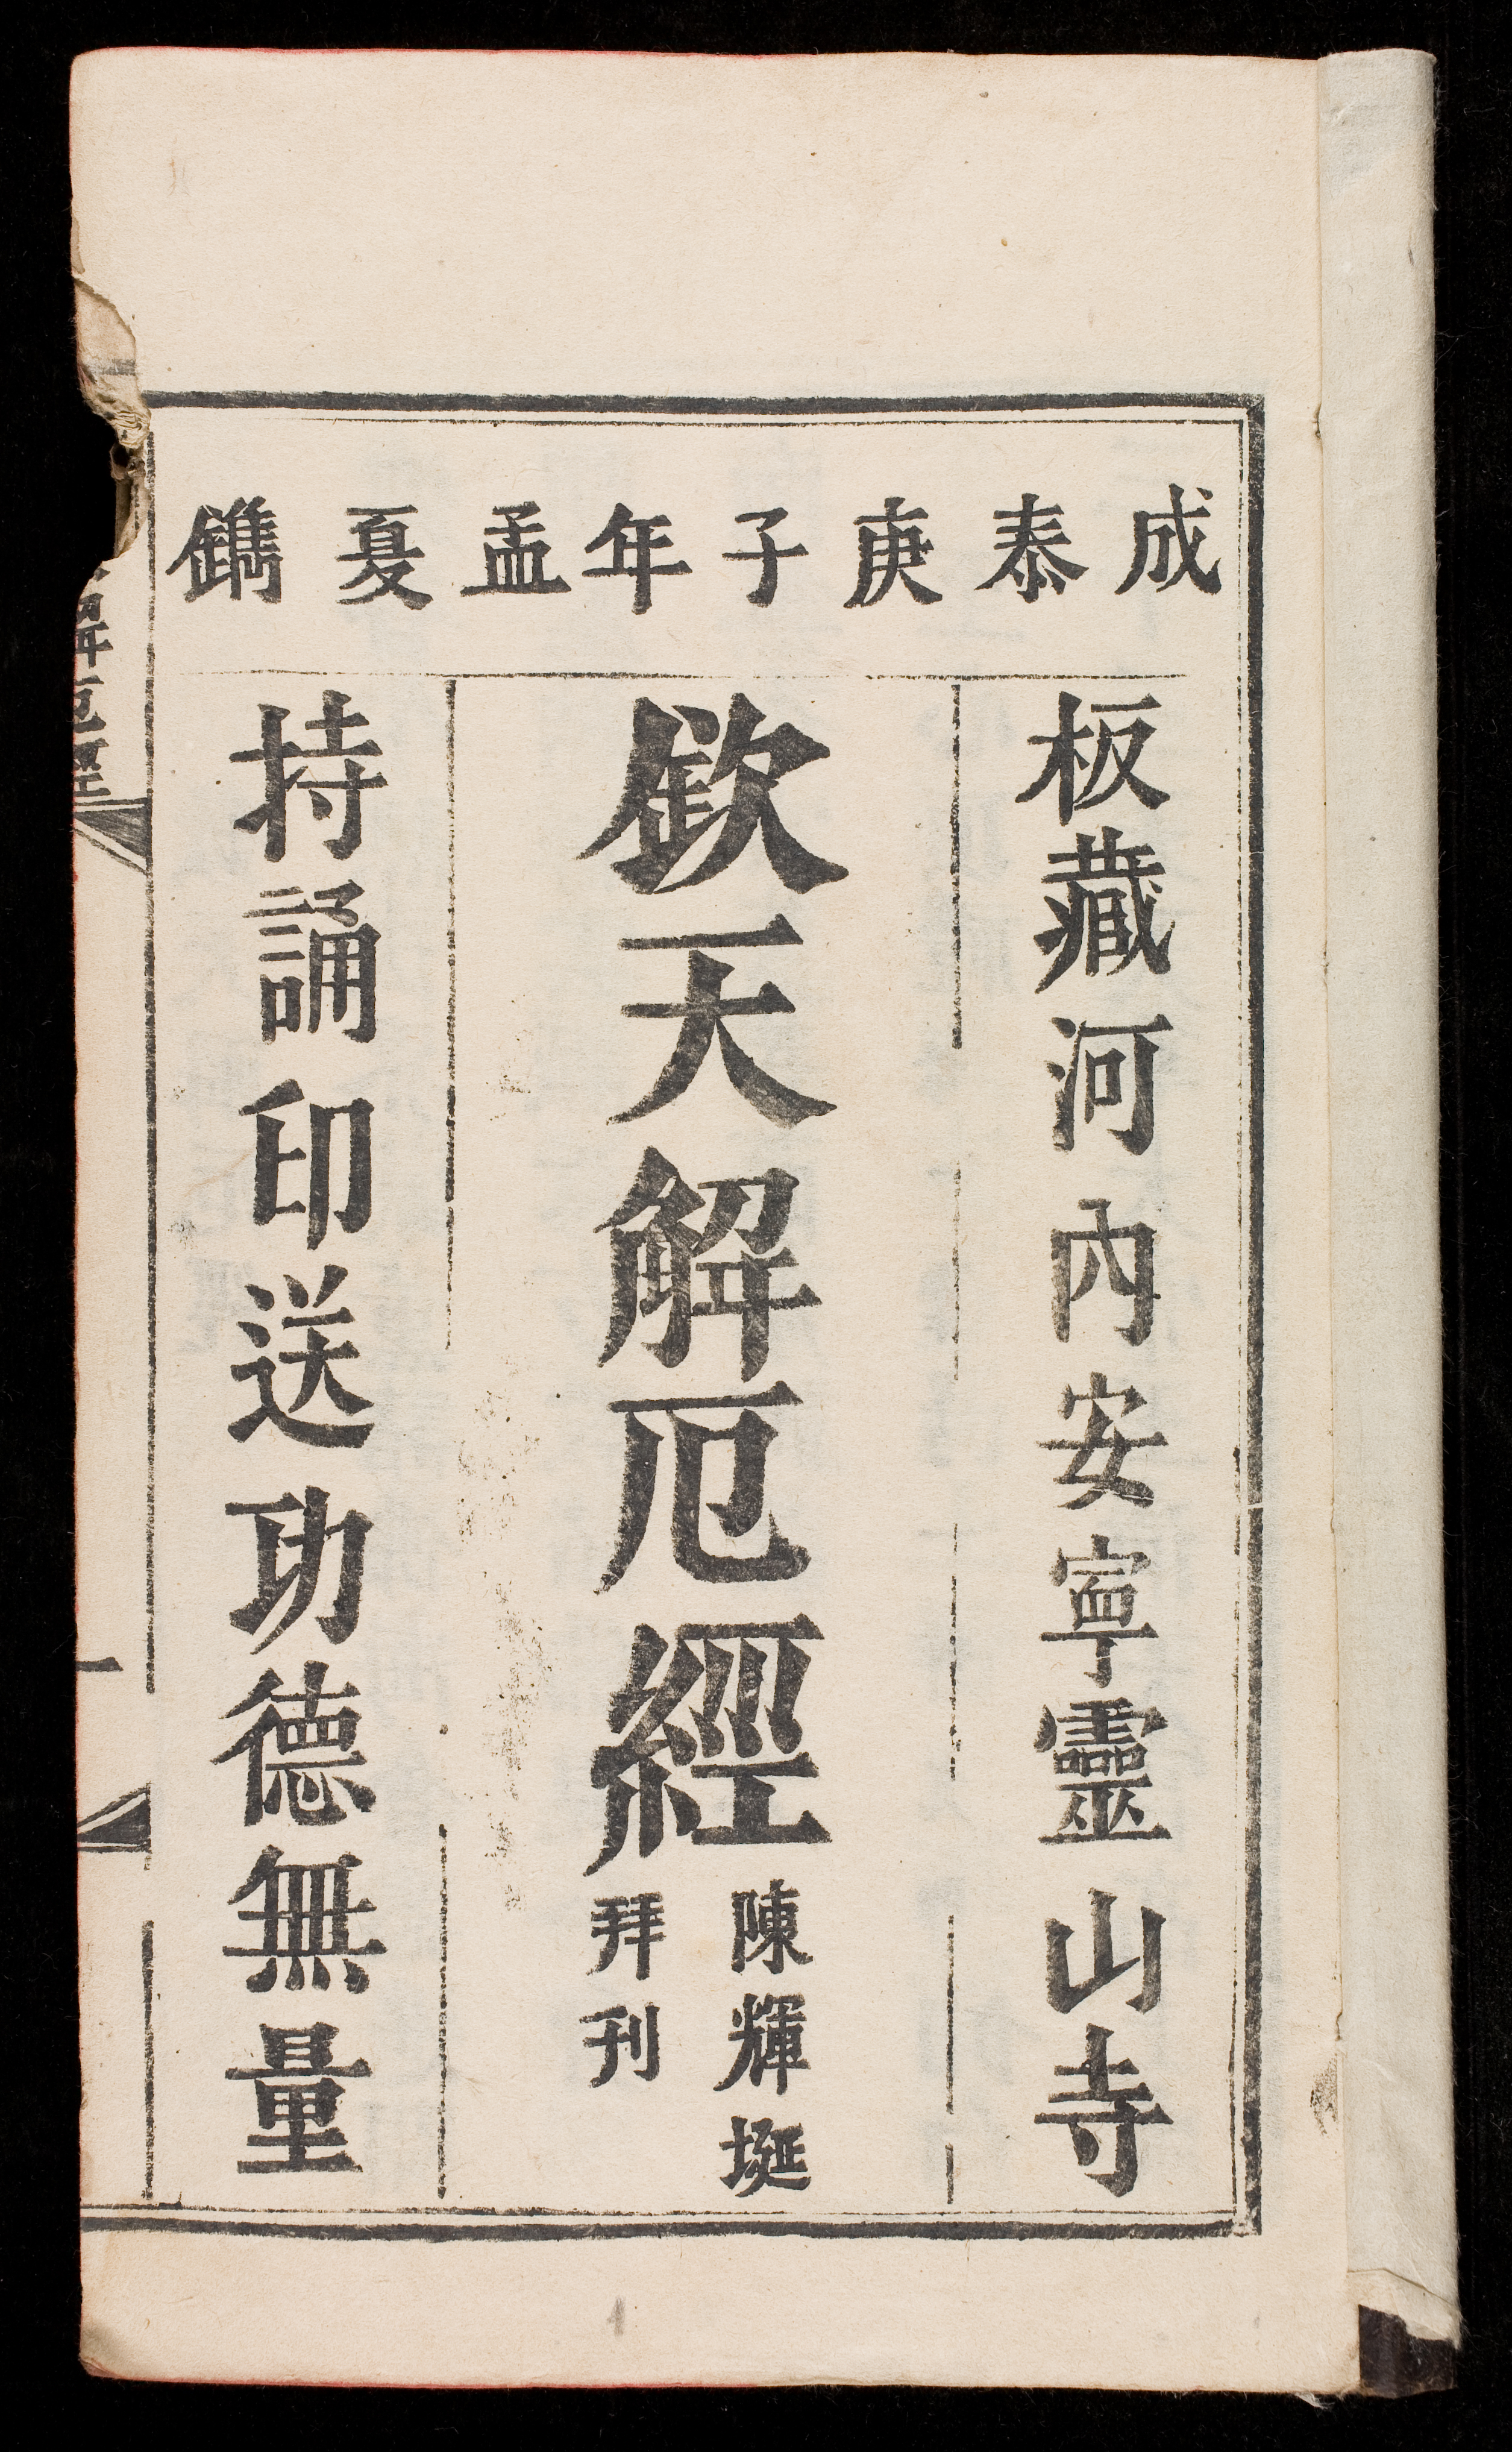 成泰庚子年孟夏鐫
板藏河內安寧靈山寺
欽天解厄經
陳輝埏
拜刊
持誦印送功德無量
解厄經
一